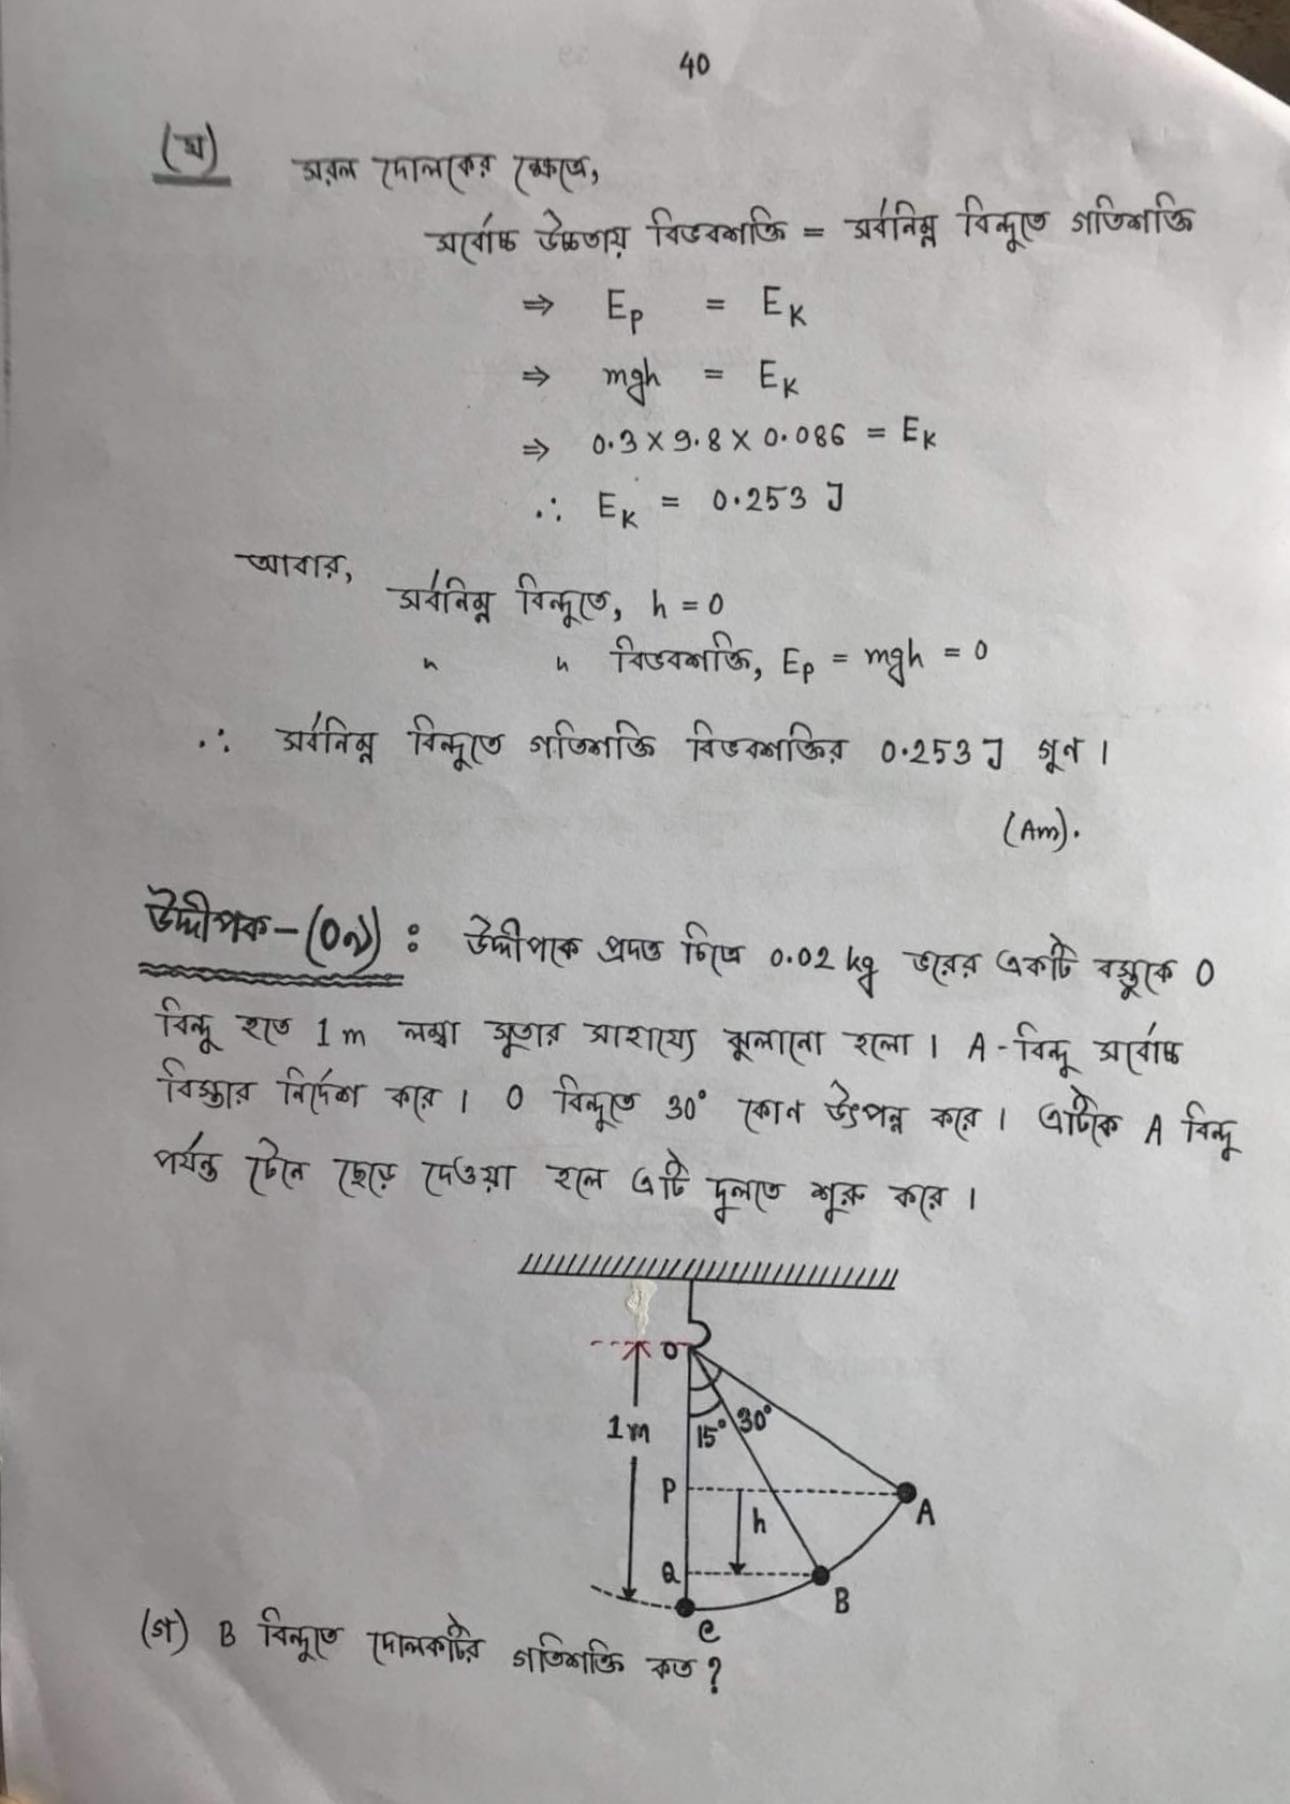 40
(ঘ) সরল দোলকের ক্ষেত্রে,
সর্বোচ্চ উচ্চতায় বিভবশক্তি = সর্বনিম্ন বিন্দুতে গতিশক্তি
⇒ Eₚ = Eₖ
⇒ mgh = Eₖ
⇒ 0.3 × 9.8 × 0.086 = Eₖ
∴ Eₖ = 0.253 J
আবার,
সর্বনিম্ন বিন্দুতে, h = 0
" " বিভবশক্তি, Eₚ = mgh = 0
∴ সর্বনিম্ন বিন্দুতে গতিশক্তি বিভবশক্তির 0.253 J গুন।
(Am).
উদ্দীপক-(0৯) : উদ্দীপকে প্রদত্ত চিত্রে 0.02 kg ভরের একটি বস্তুকে O
বিন্দু হতে 1 m লম্বা সূতার সাহায্যে ঝুলানো হলো। A-বিন্দু সর্বোচ্চ
বিস্তার নির্দেশ করে। O বিন্দুতে 30° কোন উৎপন্ন করে। এটিকে A বিন্দু
পর্যন্ত টেনে ছেড়ে দেওয়া হলে এটি দুলতে শুরু করে।
O
1m 15° 30°
P A
h
Q B
C
(গ) B বিন্দুতে দোলকটির গতিশক্তি কত?